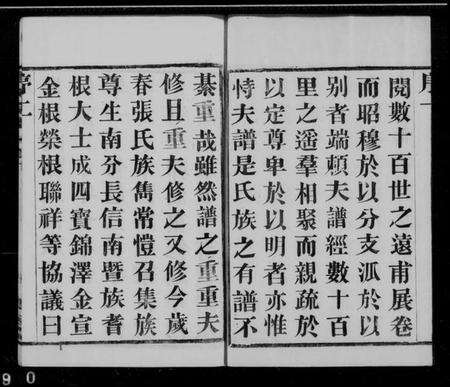 閱數十百世之遠甫展卷
而昭穆於以分支派於以
別者端頼夫譜經數十百
里之遥羣相聚而親疏於
以定尊卑於以明者亦惟
恃夫譜是氏族之有譜不
綦重哉雖然譜之重重夫
修且重夫修之又修今歲
春張氏族雋常愷召集族
尊生南分長信南暨族耆
根大士成四寶錦澤金宣
金根榮根聯祥等協議曰
9 0